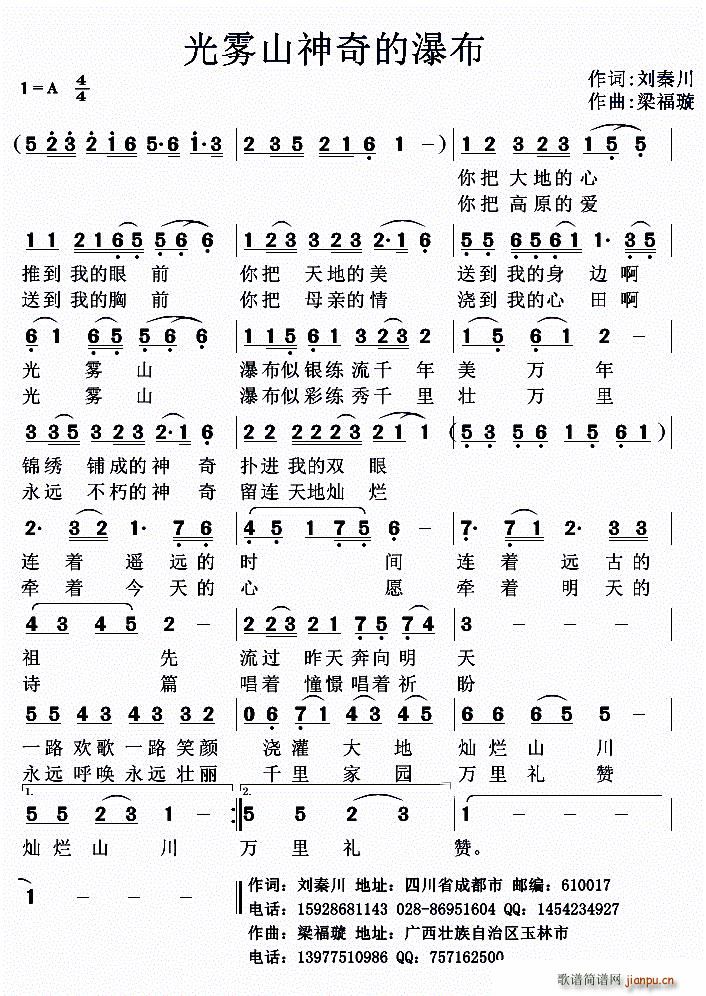 光雾山神奇的瀑布
1=A 4/4
作词:刘秦川
作曲:梁福璇
(5 2 3 2 1 6 5·6 1·3 | 2 3 5 2 1 6 1 –) | 1 2 3 2 3 1 5 5 |
你把 大地的 心
你把 高原的 爱
1 1 2 1 6 5 5 6 6 | 1 2 3 3 2 3 2·1 6 | 5 5 6 5 6 1 1· 3 5 |
推到 我的眼 前 你把 天地的 美 送到 我的身 边啊
送到 我的胸 前 你把 母亲的 情 浇到 我的心 田啊
6 1 6 5 5 6 6 | 1 1 5 6 1 3 2 3 2 | 1 5 6 1 2 – |
光 雾 山 瀑布似 银练 流千 年 美 万 年
光 雾 山 瀑布似 彩练 秀千 里 壮 万 里
3 3 5 3 2 3 2·1 6 | 2 2 2 2 2 3 2 1 1 | (5 3 5 6 1 5 6 1) |
锦绣 铺成的 神 奇 扑进 我的 双 眼
永远 不朽的 神 奇 留连 天地 灿 烂
2· 3 2 1· 7 6 | 4 5 1 7 5 6 – | 7· 7 1 2· 3 3 |
连 着 遥 远的 时 间 连 着 远 古的
牵 着 今 天的 心 愿 牵 着 明 天的
4 3 4 5 2 – | 2 2 3 2 1 7 5 7 4 | 3 – – – |
祖 先 流过 昨天 奔向 明 天
诗 篇 唱着 憧憬 唱着 祈 盼
5 5 4 3 4 3 3 2 | 0 6 7 1 4 3 4 3 | 6 6 6 5 5 – |
一路 欢歌 一路 笑颜 浇灌 大 地 灿烂 山 川
永远 呼唤 永远 壮丽 千里 家 园 万里 礼 赞
1. 2.
5 5 2 3 1 – :‖ 5 5 2 3 | 1 – – – |
灿 烂 山 川 万 里 礼 赞。
1 – – – ‖
作词：刘秦川 地址：四川省成都市 邮编：610017
电话：15928681143 028-86951604 QQ：1454234927
作曲：梁福璇 地址：广西壮族自治区玉林市
电话：13977510986 QQ：757162500
歌谱简谱网 jianpu.cn